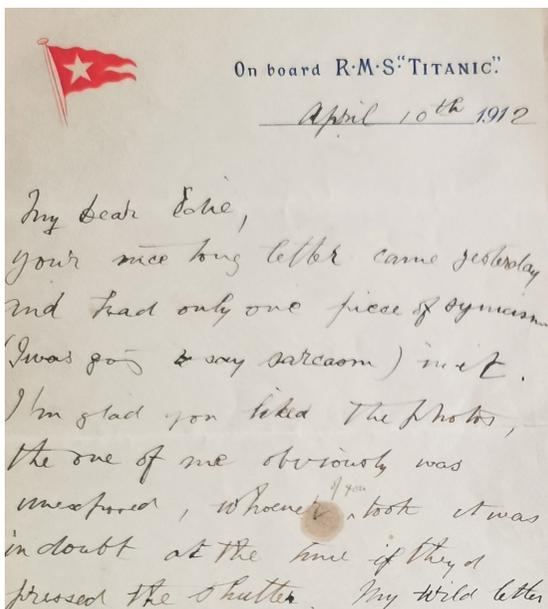 On board R·M·S "TITANIC".
April 10th 1912
My dear
your nice long letter came yesterday
and had only one piece of
(I was going to say sarcasm) in it.
I'm glad you liked the photos,
the one of me obviously was
of you
unexposed, whoever took it was
in doubt at the time if they'd
pressed the shutter. My wild letter